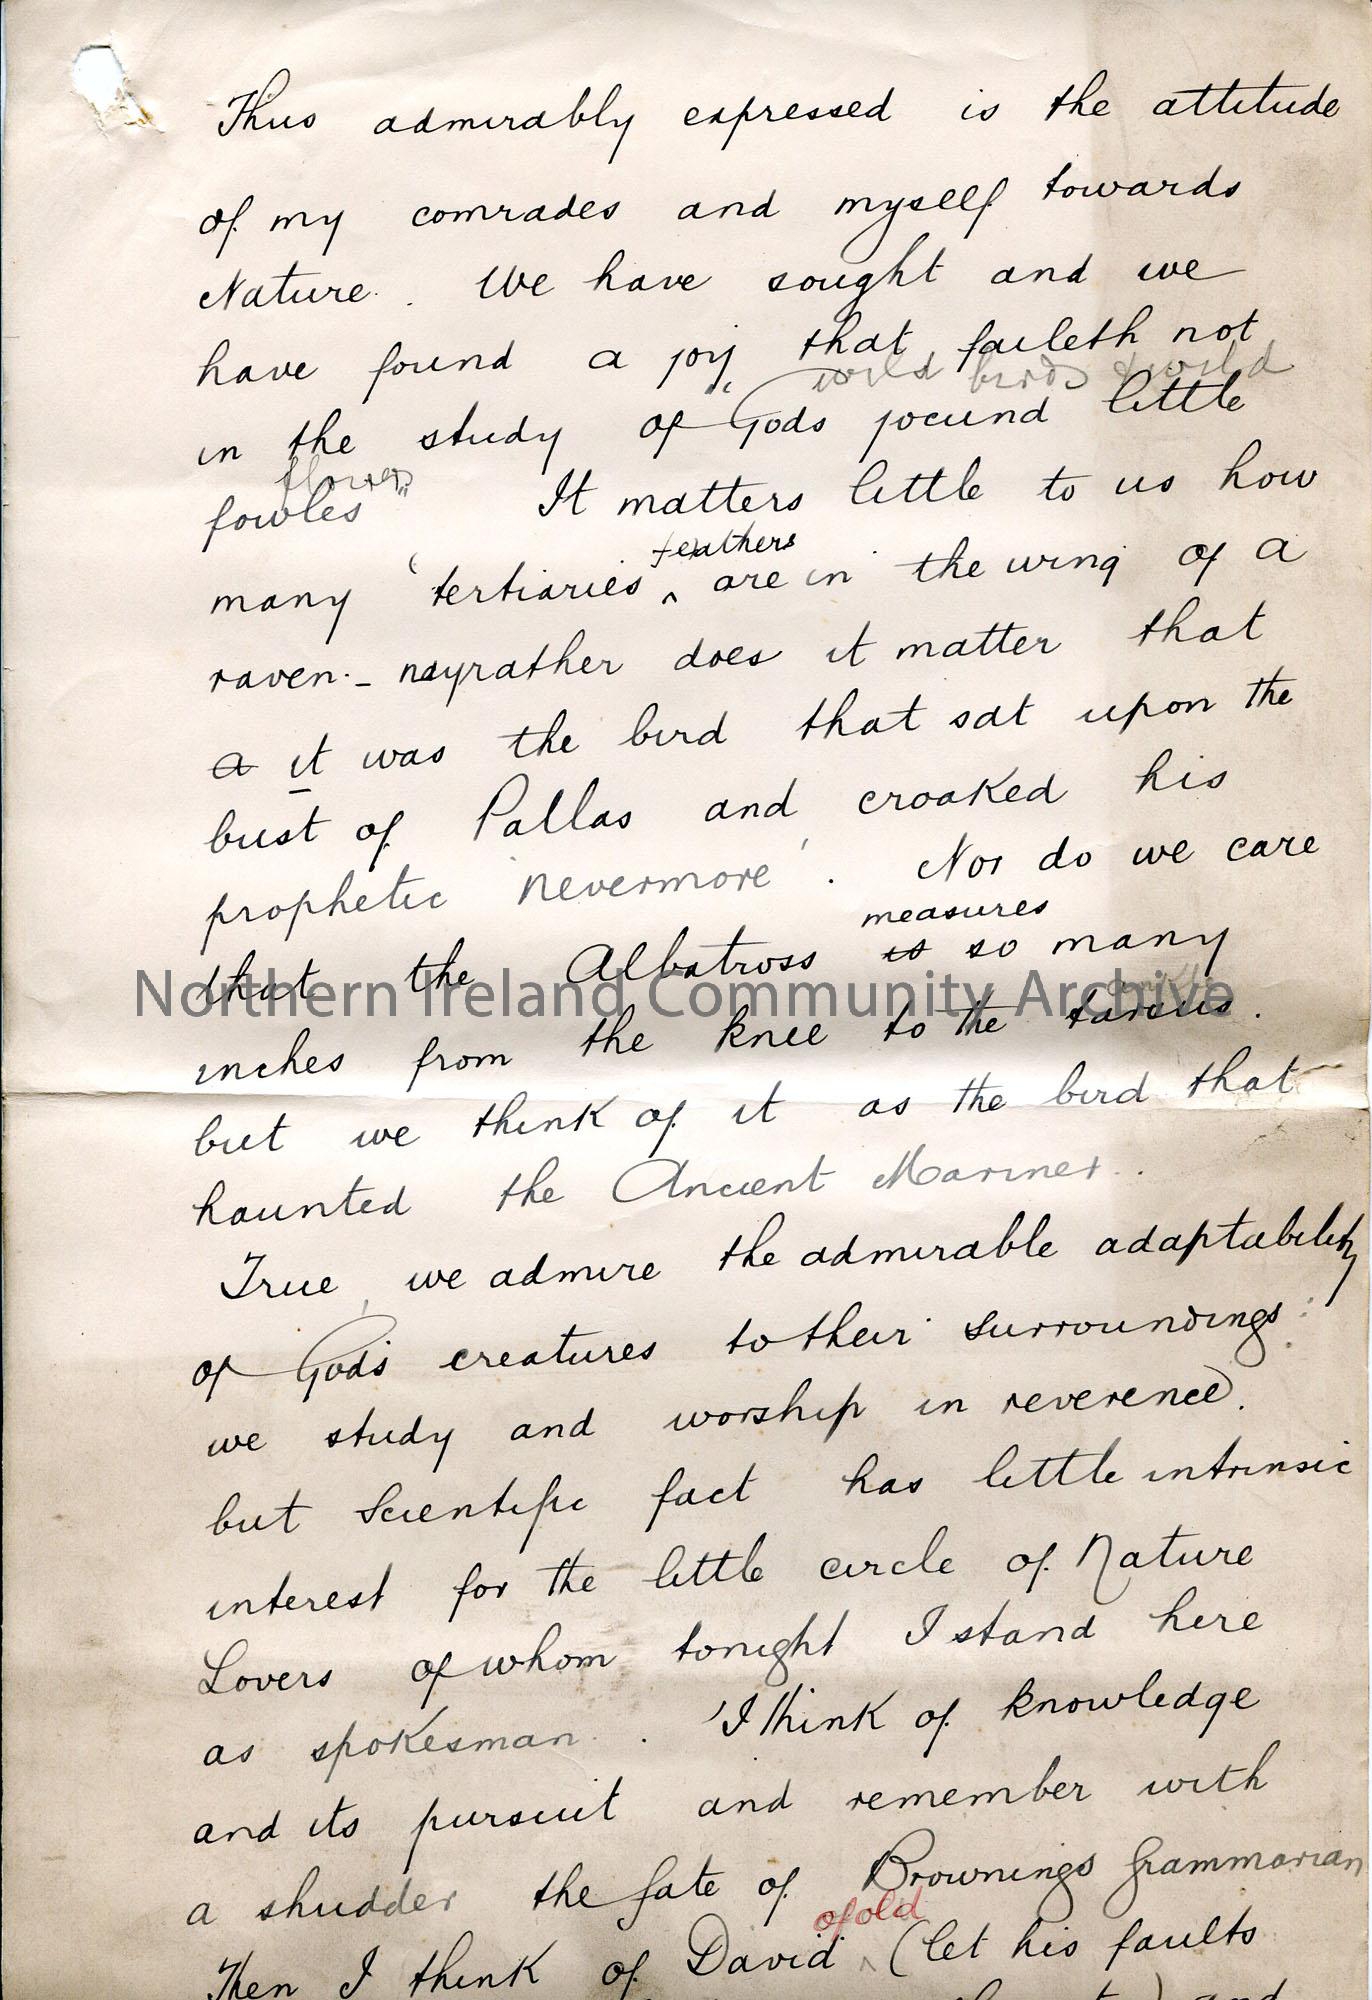 Thus admirably expressed is the attitude
of my comrades and myself towards
Nature. We have sought and we
have found a joy that faileth not
wild birds & wild
in the study of "Gods jocund little
flowers
fowles" It matters little to us how
feathers
many 'tertiaries ^ are in the wing of a
raven - nay rather does it matter that
a it was the bird that sat upon the
bust of Pallas and croaked his
prophetic 'nevermore'. Nor do we care
measures
that the Albatross is so many
ankle
inches from the knee to the tarsus.
but we think of it as the bird that
haunted the Ancient Mariner.
True, we admire the admirable adaptability
of God's creatures to their surroundings:
we study and worship in reverence.
but Scientific fact has little intrinsic
interest for the little circle of Nature
Lovers of whom tonight I stand here
as spokesman. 'I think of knowledge
and its pursuit and remember with
a shudder the fate of Brownings Grammarian
of old
Then I think of David ^ (let his faults
) and
Northern Ireland Community Archive